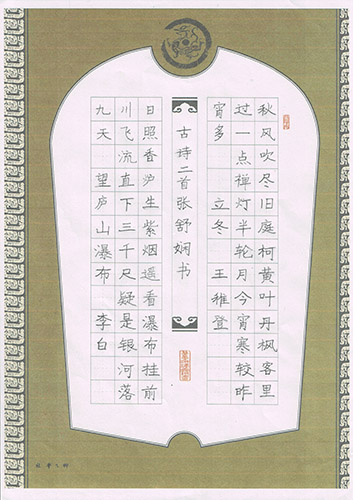 秋风吹尽旧庭柯黄叶丹枫客里
过一点禅灯半轮月今宵寒较昨
宵多 立冬 王稚登
古诗二首张舒娴书
日照香炉生紫烟遥看瀑布挂前
川飞流直下三千尺疑是银河落
九天 望庐山瀑布 李白